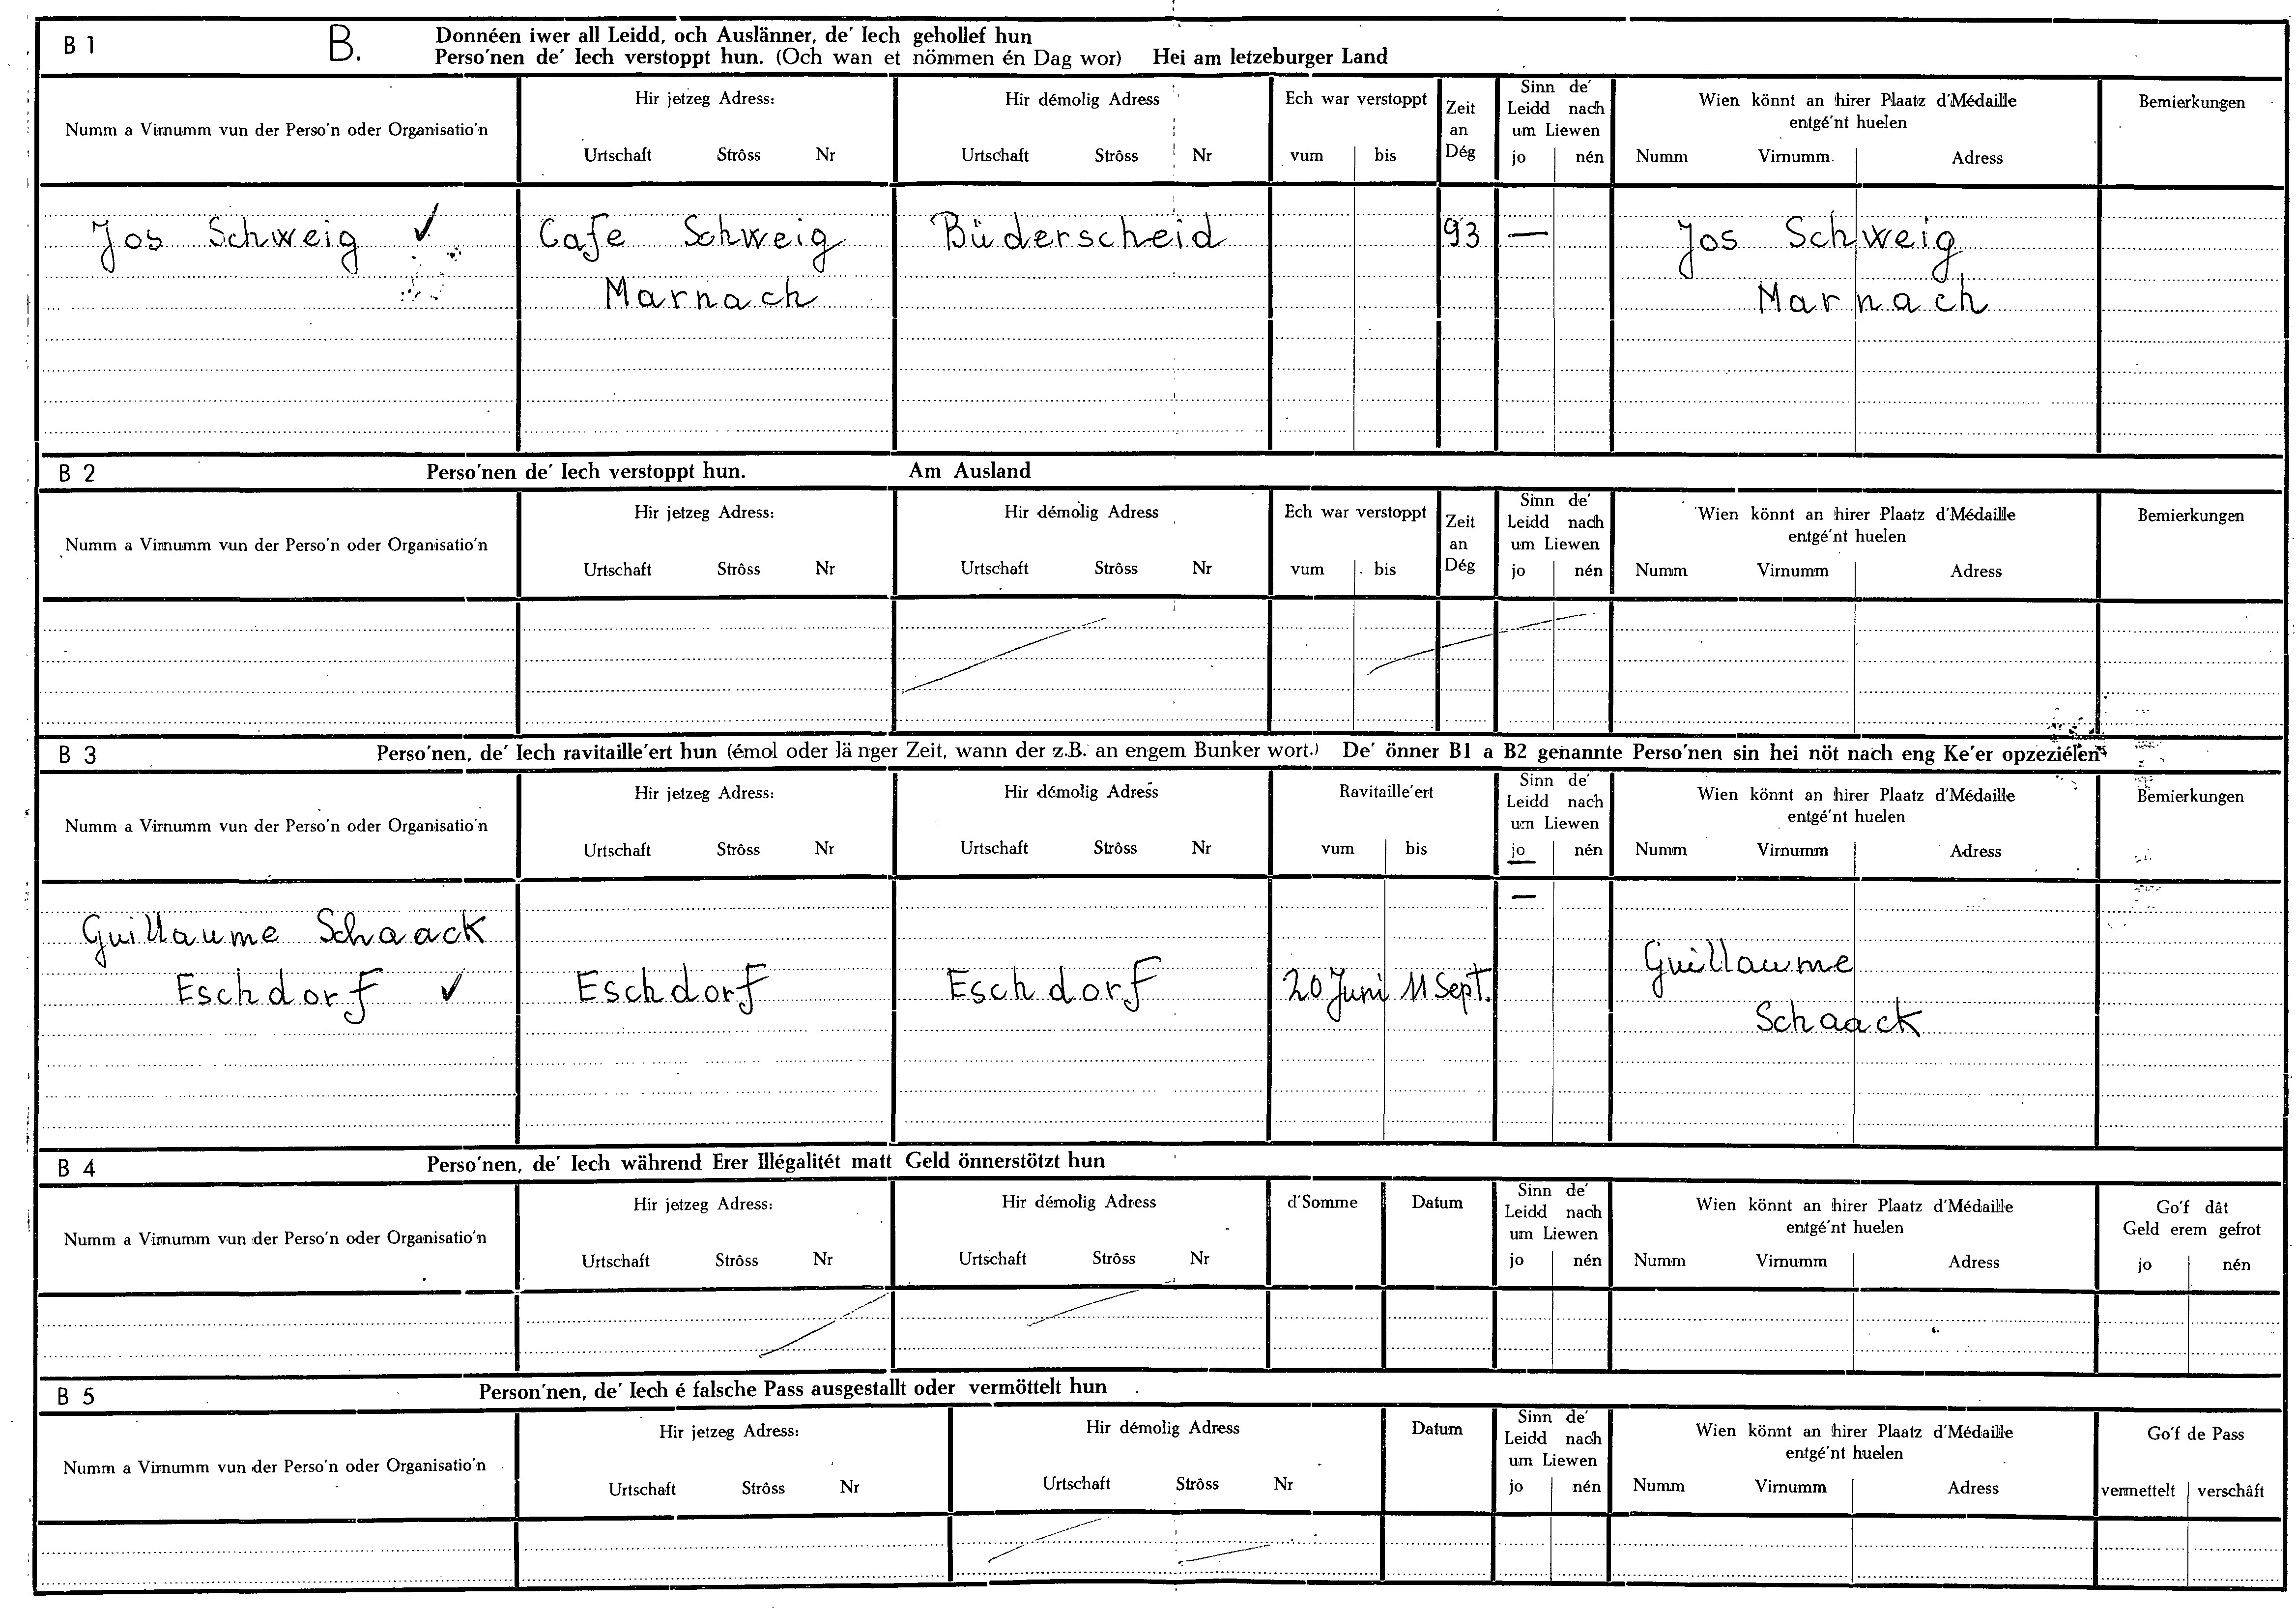 B 1 B. Donnéen iwer all Leidd, och Auslänner, de' Iech gehollef hun
Perso'nen de' Iech verstoppt hun. (Och wan et nömmen én Dag wor) Hei am letzeburger Land
Numm a Virnumm vun der Perso'n oder Organisatio'n
Hir jetzeg Adress:
Urtschaft Strôss Nr
Hir démolig Adress
Urtschaft Strôss Nr
Ech war verstoppt
vum bis
Zeit
an
Dég
Sinn de'
Leidd nach
um Liewen
jo nén
Wien könnt an hirer Plaatz d'Médaille
entgé'nt huelen
Numm Virnumm Adress
Bemierkungen
Jos Schweig ✓ Cafe Schweig Büderscheid 93 — Jos Schweig
Marnach Marnach
B 2 Perso'nen de' Iech verstoppt hun. Am Ausland
Numm a Virnumm vun der Perso'n oder Organisatio'n
Hir jetzeg Adress:
Urtschaft Strôss Nr
Hir démolig Adress
Urtschaft Strôss Nr
Ech war verstoppt
vum bis
Zeit
an
Dég
Sinn de'
Leidd nach
um Liewen
jo nén
Wien könnt an hirer Plaatz d'Médaille
entgé'nt huelen
Numm Virnumm Adress
Bemierkungen
B 3 Perso'nen, de' Iech ravitaille'ert hun (émol oder länger Zeit, wann der z.B. an engem Bunker wort.) De' önner B1 a B2 genannte Perso'nen sin hei nöt nach eng Ke'er opzeziélen
Numm a Virnumm vun der Perso'n oder Organisatio'n
Hir jetzeg Adress:
Urtschaft Strôss Nr
Hir démolig Adress
Urtschaft Strôss Nr
Ravitaille'ert
vum bis
Sinn de'
Leidd nach
um Liewen
jo nén
Wien könnt an hirer Plaatz d'Médaille
entgé'nt huelen
Numm Virnumm Adress
Bemierkungen
—
Guillaume Schaack Guillaume
Eschdorf ✓ Eschdorf Eschdorf 20 Juni 11 Sept.
Schaack
B 4 Perso'nen, de' Iech während Erer Illégalitét matt Geld önnerstötzt hun
Numm a Virnumm vun der Perso'n oder Organisatio'n
Hir jetzeg Adress:
Urtschaft Strôss Nr
Hir démolig Adress
Urtschaft Strôss Nr
d'Somme
Datum
Sinn de'
Leidd nach
um Liewen
jo nén
Wien könnt an hirer Plaatz d'Médaille
entgé'nt huelen
Numm Virnumm Adress
Go'f dât
Geld erem gefrot
jo nén
B 5 Person'nen, de' Iech é falsche Pass ausgestallt oder vermöttelt hun
Numm a Virnumm vun der Perso'n oder Organisatio'n
Hir jetzeg Adress:
Urtschaft Strôss Nr
Hir démolig Adress
Urtschaft Strôss Nr
Datum
Sinn de'
Leidd nach
um Liewen
jo nén
Wien könnt an hirer Plaatz d'Médaille
entgé'nt huelen
Numm Virnumm Adress
Go'f de Pass
vermettelt verschâft